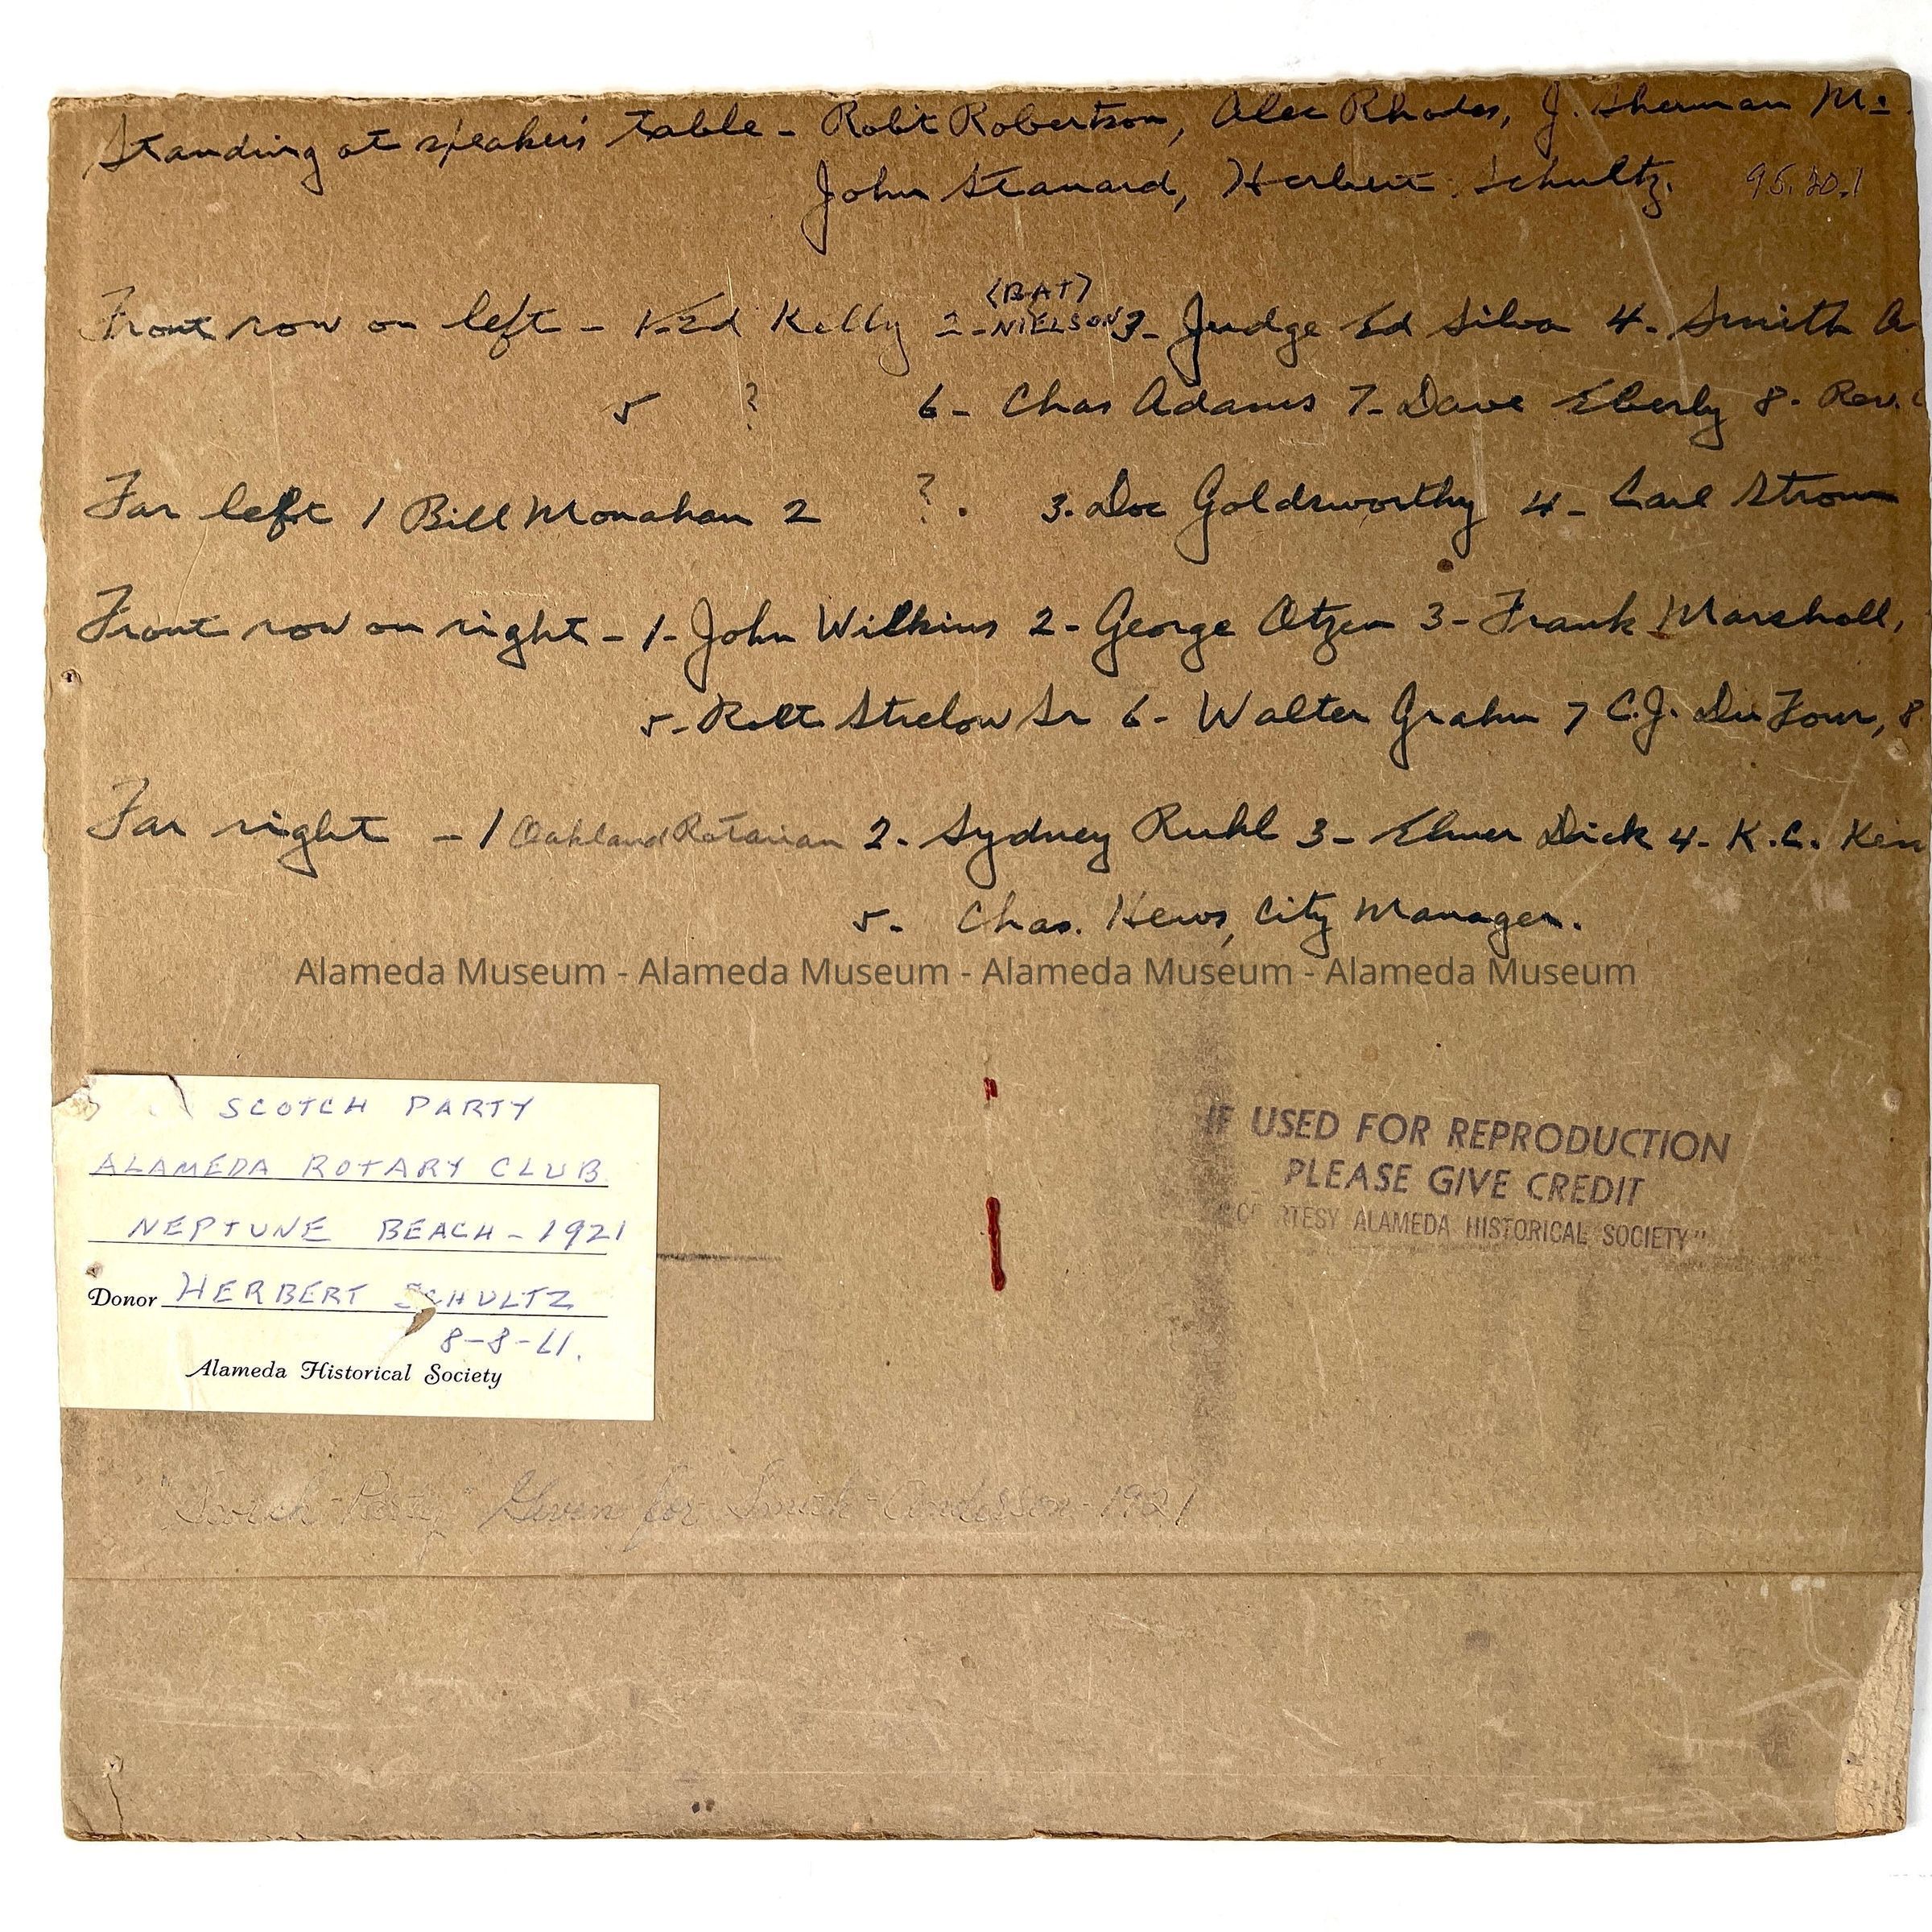 Standing at speakers' table - Robt Robertson, Alec Rhodes, J. Sherman Mc
John Stanard, Herbert Schultz. 95.20.1
(BAT)
Front row on left - 1-Ed Kelly 2-NIELSON 3- Judge Ed Silva 4- Smith A
5 ? 6- Chas Adams 7- Dave Eberly 8- Rev.
Far left 1 Bill Monahan 2 ? . 3. Doc Goldsworthy 4- Carl Strom
Front row on right - 1- John Wilkins 2- George Otzen 3- Frank Marshall,
5- Robt Strelow Sr 6- Walter Grahn 7 C.J. Du Four, 8
Far right - 1 Oakland Rotarian 2. Sydney Ruhl 3- Elmer Dick 4- K.C. Ken
5- Chas. Hews, City Manager.
Alameda Museum - Alameda Museum - Alameda Museum - Alameda Museum
SCOTCH PARTY
ALAMEDA ROTARY CLUB
NEPTUNE BEACH - 1921
Donor HERBERT SCHULTZ
8-8-61.
Alameda Historical Society
IF USED FOR REPRODUCTION
PLEASE GIVE CREDIT
"COURTESY ALAMEDA HISTORICAL SOCIETY"
"Scotch Party" Given for Smith Anderson - 1921